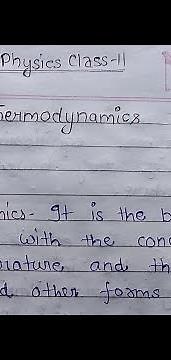 Physics Class-11
hermodynamics
mics- It is the b
with the con
rature, and th
d other forms